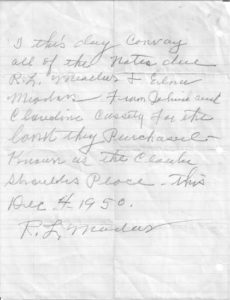 I this day convay
all of the notes due
R.L. Meadows & Edna
Meadows From Johnie and
Claudine Cassety for the
land they Purchased
Known as the Claude
Shoulders Place - this
Dec 4 1950.
R. L. Meadows